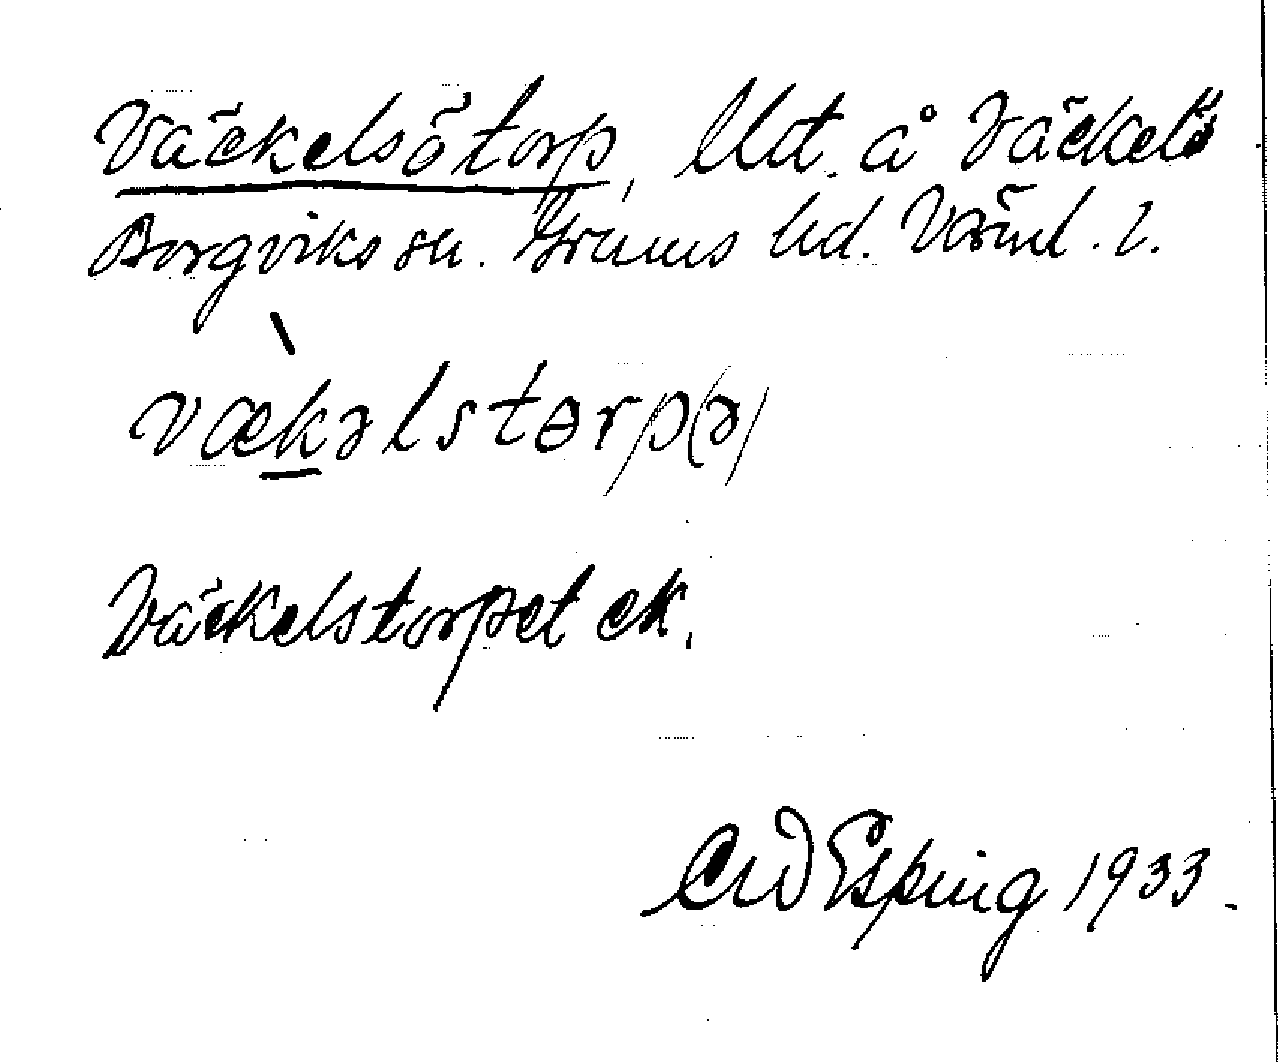 Väckelsötorp, Utt. å Väckelsö
Borgviks sn. Grums hd. Värml. l.
vækəlstɵrp(ə)
Väckelstorpet ek.
Esping 1933.